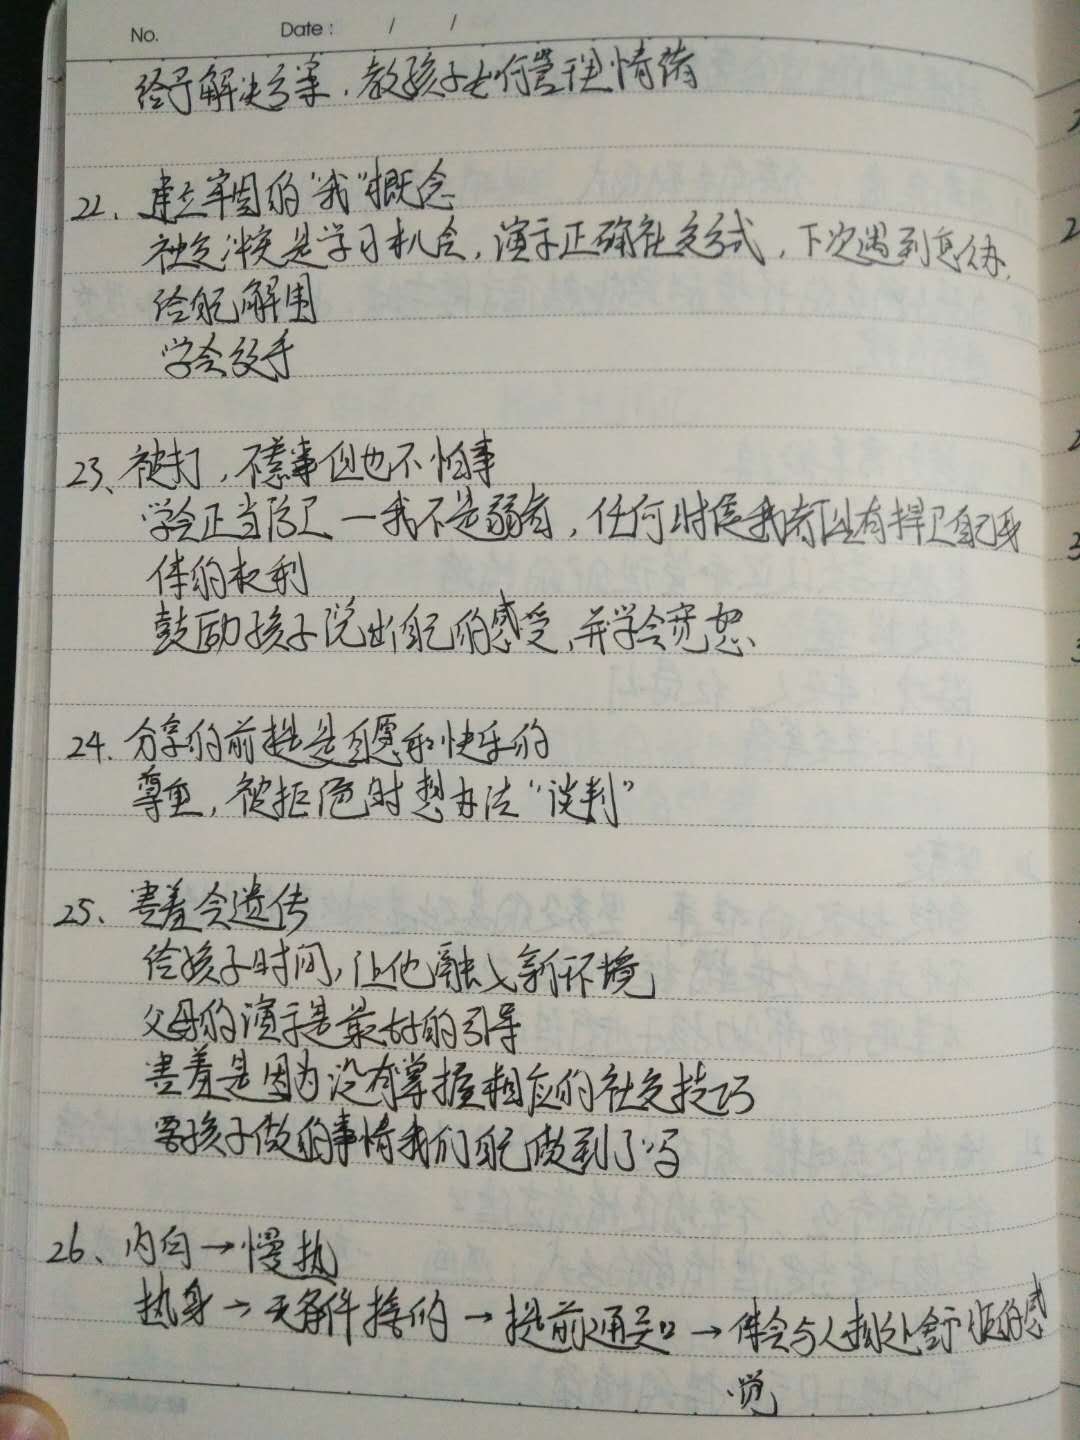 No.
Date : / /
给予解决方案，教孩子如何管理情绪
22、建立牢固的“我”概念
社交冲突是学习机会，演示正确社交方式，下次遇到怎么办，
给自己解围
学会放手
23、被打，不惹事但也不怕事
学会正当防卫 — 我不是弱者，任何时候我都没有捍卫自己身
体的权利
鼓励孩子说出自己的感受，并学会宽恕
24. 分享的前提是自愿和快乐的
尊重，被拒绝时想办法“谈判”
25、害羞会遗传
给孩子时间，让他融入新环境
父母的演示是最好的引导
害羞是因为没有掌握相应的社交技巧
要孩子做的事情我们自己做到了吗
26、内向→慢热
热身→无条件接纳→提前通知→体会与人相处舒服的感
觉